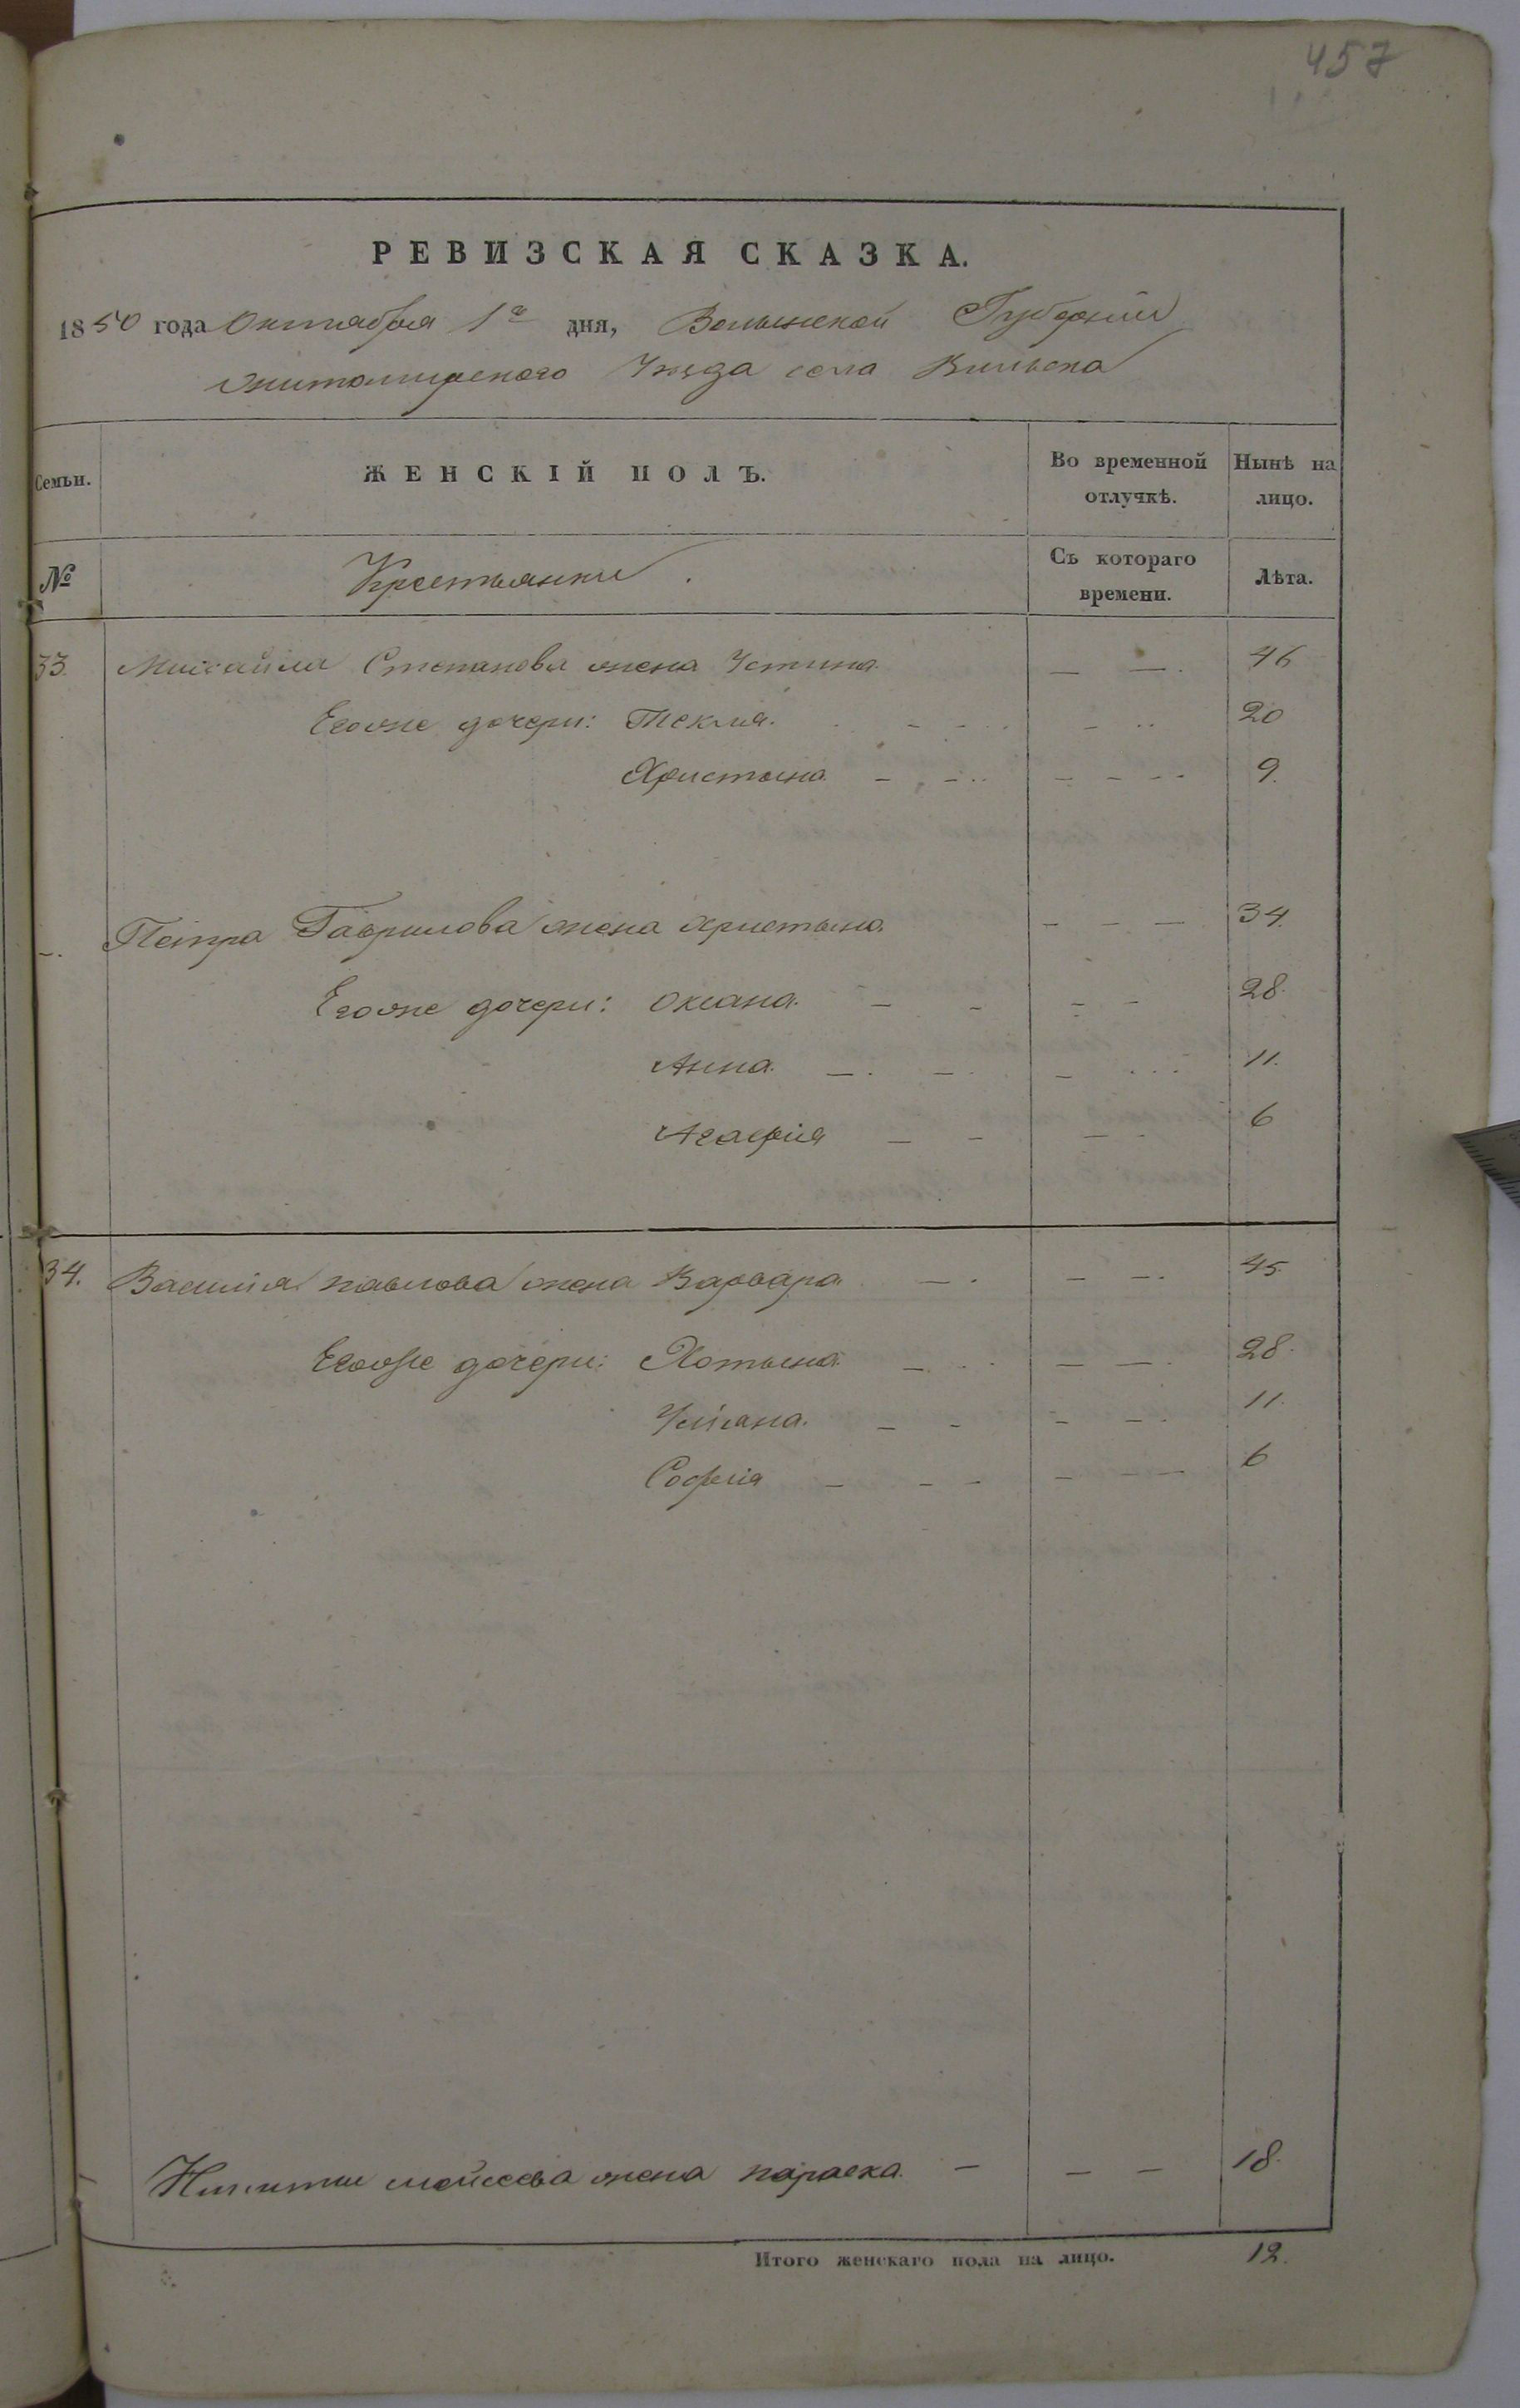 457
РЕВИЗСКАЯ СКАЗКА.
1850 года Октября 1го дня, Волынской Губерніи
Житомирского Уезда села Вильска
Семьи. ЖЕНСКІЙ ПОЛЪ. Во временной отлучкѣ. Нынѣ на лицо.
№ Крестьянки. Съ котораго времени. Лѣта.
33. Михайла Степанова жена Устина — —. 46
Егоже дочери: Текля. 20
Христына 9.
—. Петра Гаврилова жена Христына — — — 34.
Егоже дочери: Оксана. — - - - 28.
Анна. —. —. — ... 11.
Агафія — - —. 6
34. Василія Павлова жена Варвара —. — —. 45.
Егоже дочери: Хотына — — —. 28.
Уліяна. — - - —. 11.
Софія — - - — — — 6
— Никиты Мойсеева жена Параска. — — — 18.
Итого женскаго пола на лицо. 12.